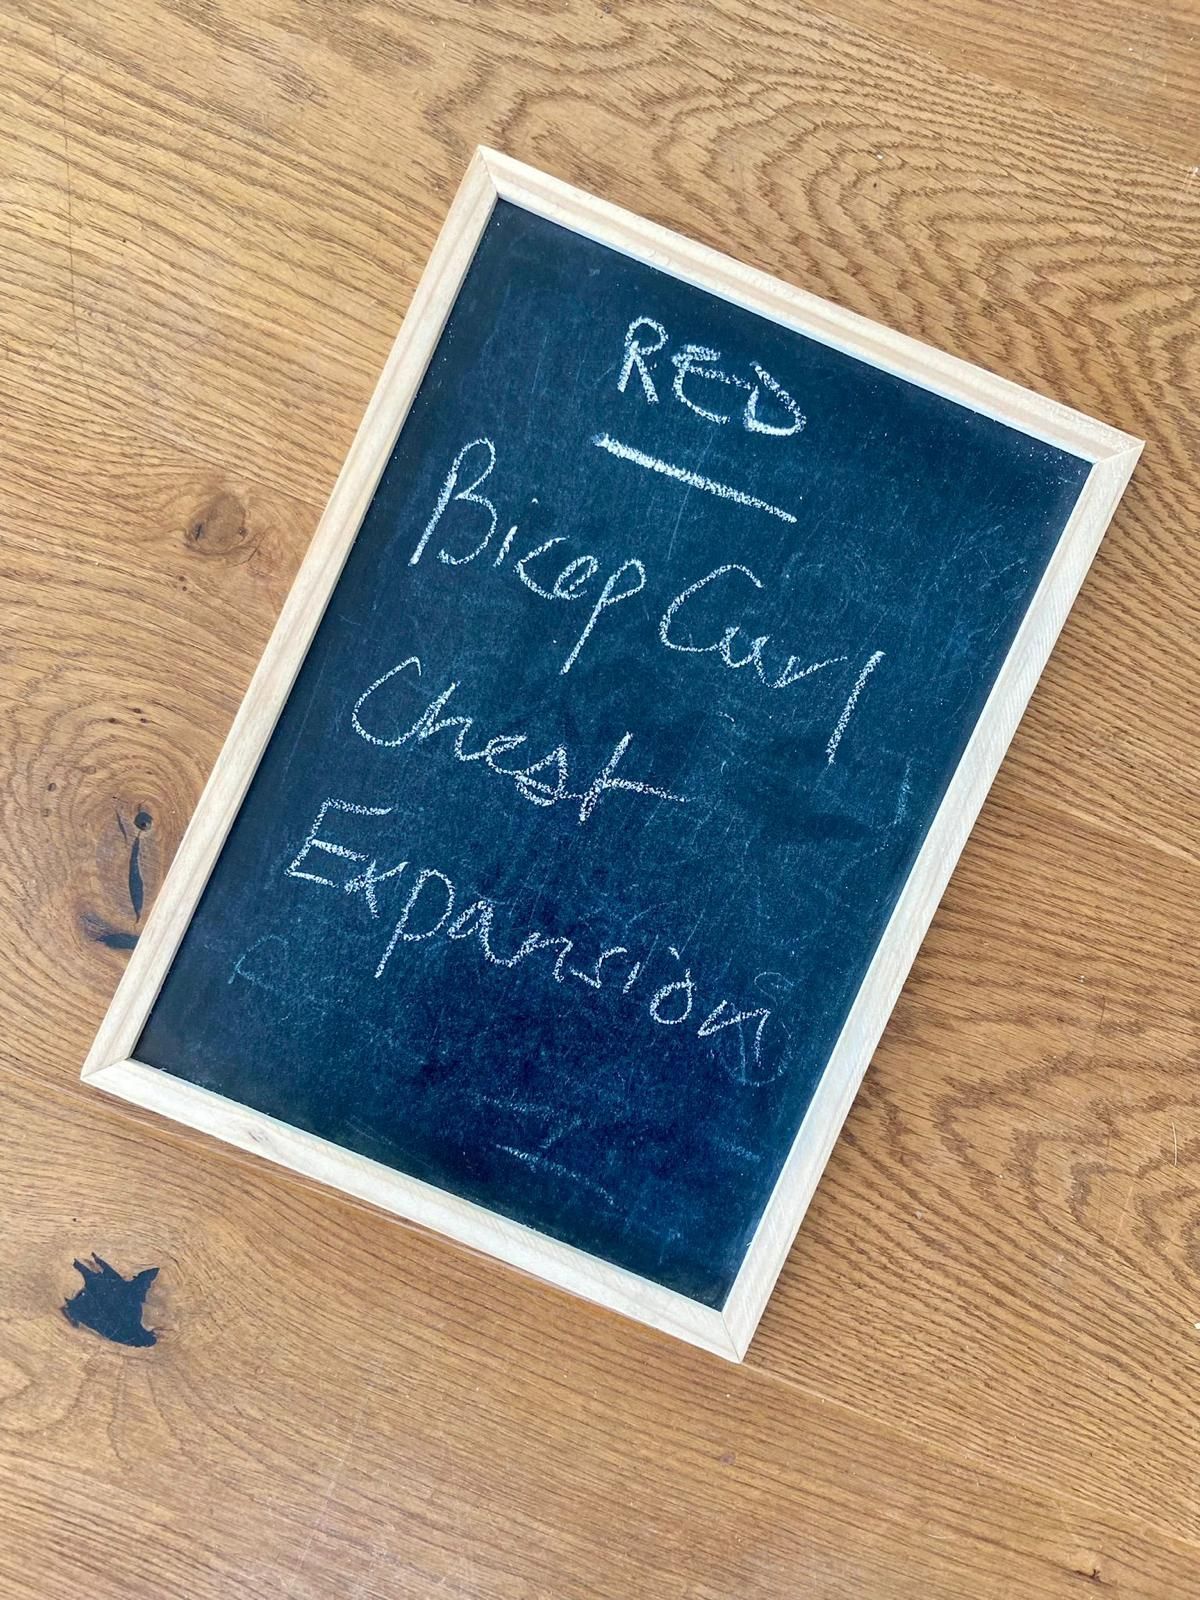 RED
Bicep Curl
Chest
Expansion